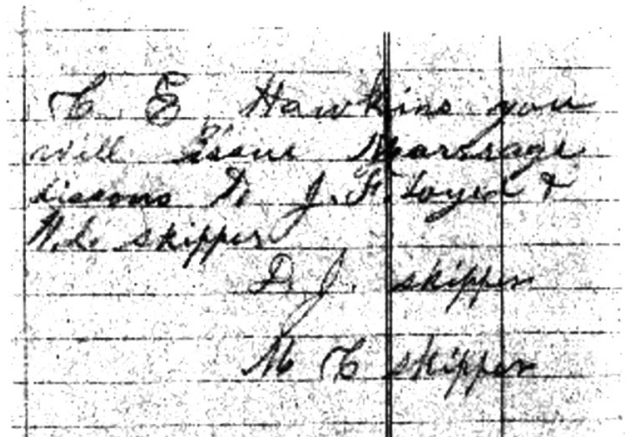 C. E. Hawkins you
will issue Marrage
lissons to J. F. Loyed &
N. L. skipper
D. J. skipper
M C skipper